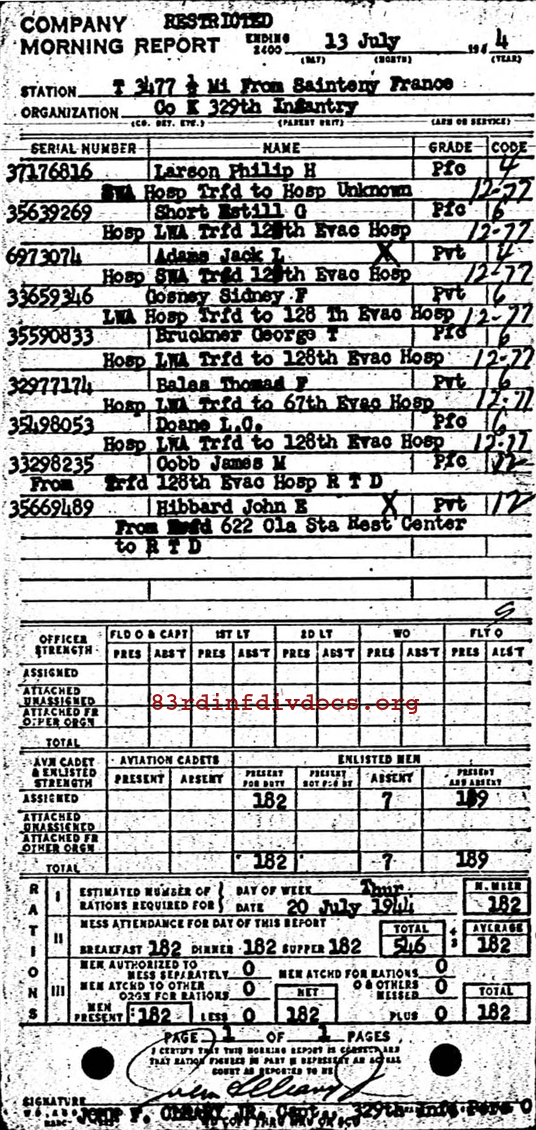 COMPANY RESTRICTED
MORNING REPORT ENDING 2400 13 July 194 4
(DAY) (MONTH) (YEAR)
STATION T 3477 ½ Mi From Sainteny France
ORGANIZATION Co K 329th Infantry
(CO. DET. ETC.) (PARENT UNIT) (ARM OR SERVICE)
SERIAL NUMBER NAME GRADE CODE
37176816 Larson Philip H Pfc 4
SWA Hosp Trfd to Hosp Unknown 12-77
35639269 Short Estill G Pfc 6
Hosp LWA Trfd 128th Evac Hosp 12-77
6973074 Adams Jack L X Pvt 4
Hosp SWA Trfd 128th Evac Hosp 12-77
33659346 Gosney Sidney F Pvt 6
LWA Hosp Trfd to 128 Th Evac Hosp 12-77
35590833 Bruckner George T Pfc 6
Hosp LWA Trfd to 128th Evac Hosp 12-77
32977174 Bales Thomas F Pvt 6
Hosp LWA Trfd to 67th Evac Hosp 12-77
35498053 Doane L.C. Pfc 6
Hosp LWA Trfd to 128th Evac Hosp 12-77
33298235 Cobb James M Pfc 12
From Trfd 128th Evac Hosp R T D
35669489 Hibbard John E X Pvt 12
From 622 Cla Sta Rest Center
to R T D
OFFICER STRENGTH FLD O & CAPT 1ST LT 2D LT WO FLT O
PRES ABS'T PRES ABS'T PRES ABS'T PRES ABS'T PRES ABS'T
ASSIGNED
ATTACHED UNASSIGNED
ATTACHED FR OTHER ORGN
TOTAL
83rdinfdivdocs.org
AVN CADET & ENLISTED STRENGTH AVIATION CADETS ENLISTED MEN
PRESENT ABSENT PRESENT FOR DUTY PRESENT NOT FOR DY ABSENT PRESENT AND ABSENT
ASSIGNED 182 7 189
ATTACHED UNASSIGNED
ATTACHED FR OTHER ORGN
TOTAL 182 7 189
RATIONS
I ESTIMATED NUMBER OF RATIONS REQUIRED FOR DAY OF WEEK Thur NUMBER
DATE 20 July 1944 182
II MESS ATTENDANCE FOR DAY OF THIS REPORT TOTAL ÷ 3 AVERAGE
BREAKFAST 182 DINNER 182 SUPPER 182 546 182
III MEN AUTHORIZED TO MESS SEPARATELY 0 MEN ATCHD FOR RATIONS 0
MEN ATCHD TO OTHER ORGN FOR RATIONS 0 NET O & OTHERS MESSED 0 TOTAL
MEN PRESENT 182 LESS 0 182 PLUS 0 182
PAGE 1 OF 1 PAGES
I CERTIFY THAT THIS MORNING REPORT IS CORRECT AND
THAT RATION FIGURES IN PART III REPRESENT AN ACTUAL
COUNT AS REPORTED TO ME
SIGNATURE
F. CLEARY JR. Capt., 329th Inf. Pers O